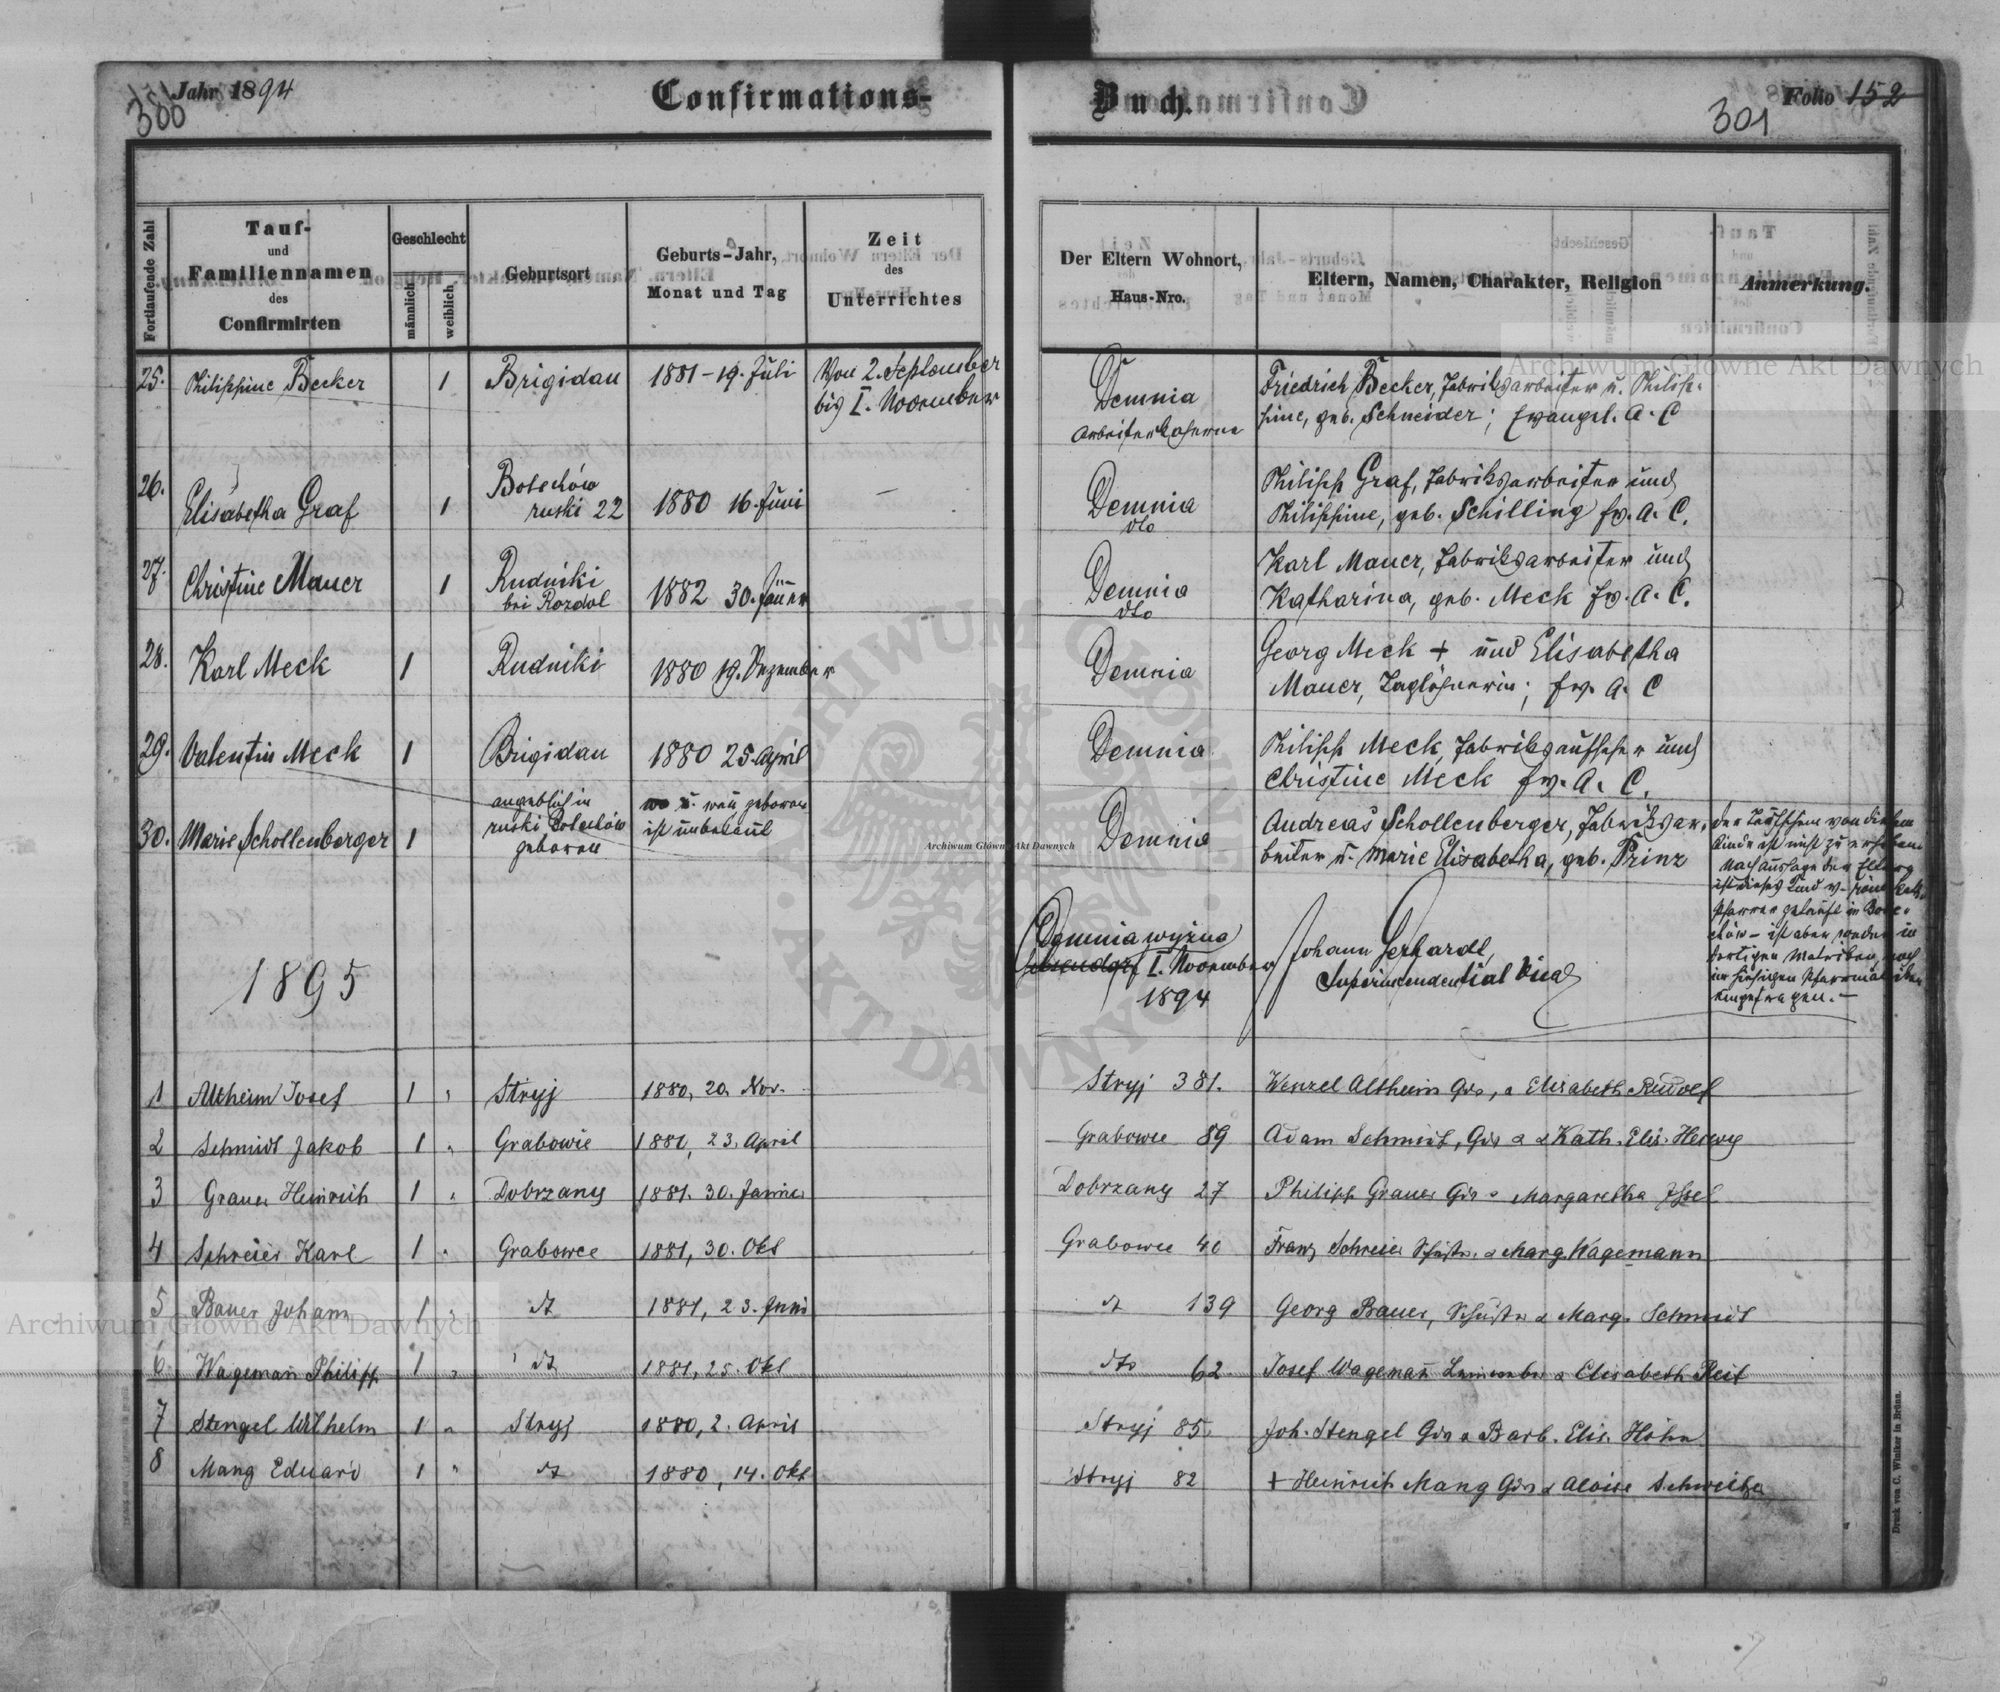 Jahr 1894
300
Confirmations-
Buch.
Folio 152
301
Fortlaufende Zahl
Tauf-
und
Familiennamen
des
Confirmirten
Geschlecht
männlich
weiblich
Geburtsort
Geburts-Jahr,
Monat und Tag
Zeit
des
Unterrichtes
Der Eltern Wohnort,
Haus-Nro.
Eltern, Namen, Charakter, Religion
Anmerkung.
25. Philippine Becker 1 Brigidau 1881 - 19. Juli Von 2. September
bis I. November
Demnia
Arbeiterkaserne
Friedrich Becker, Fabriksarbeiter u. Philip-
pine, geb. Schneider; Evangel. A. C
26. Elisabetha Graf 1 Bolechów
ruski 22 1880 16. Juni —
Demnia
dto
Philipp Graf, Fabriksarbeiter und
Philippine, geb. Schilling Ev. A. C.
27. Christine Mauer 1 Rudniki
bei Rozdol 1882 30. Jänner
Demnia
dto
Karl Mauer, Fabriksarbeiter und
Katharina, geb. Meck Ev. A. C.
28. Karl Meck 1 Rudniki 1880 19. Dezember
Demnia
Georg Meck + und Elisabetha
Mauer, Taglöhnerin; Ev. A. C
29. Valentin Meck 1 Brigidau 1880 25. April
Demnia
Philipp Meck, Fabriksaufseher und
Christine Meck Ev. A. C.
30. Marie Schollenberger 1 angeblich in
ruski Bolechów
geboren
wo u. wañ geboren
ist unbekañt
Demnia
Andreas Schollenberger, Fabriksar-
beiter u. Marie Elisabetha, geb. Prinz
der Taufschein von diesem
Kinde ist nicht zu erheben
Nach Aussage der Eltern
ist dieses Kind v.
Pfarrer getauft in Bole-
chów - ist aber weder in
dortigen Matriken, noch
im hiesigen
eingetragen. —
Demnia wyżna
I. November
1894
Johann Gerhardt,
Superintendential Vicar
1895
1 Altheim Josef 1 " Stryj 1880, 20. Nov. Stryj 381. Wenzel Altheim Gds, & Elisabeth Rudolf
2 Schmidt Jakob 1 " Grabowie 1881, 23. April Grabowce 89 Adam Schmidt, Gds & Kath. Elis. Herwy
3 Grauer Heinrich 1 " Dobrzany 1881. 30. Jänner Dobrzany 27 Philipp Grauer Gds & Margaretha Issel
4 Schreier Karl 1 " Grabowce 1881, 30. Okt Grabowce 40 Franz Schreier & Marg. Wagemann
5 Bauer Johann 1 " dt 1881, 23. Juni dt 139 Georg Bauer, & Marg. Schmidt
6 Wagemañ Philipp 1 " dt 1881, 25. Okt dto 62 Josef Wagemañ & Elisabeth Reit
7 Stengel Wilhelm 1 " Stryj 1880, 2. April Stryj 85 Joh. Stengel Gds & Barb. Elis. Höhn
8 Mang Eduard 1 " dt 1880, 14. Okt Stryj 82 + Heinrich Mang Gds & Aloise Schweitzer
Druck von C. Winiker in Brünn.
Archiwum Główne Akt Dawnych
Archiwum Główne Akt Dawnych
Archiwum Główne Akt Dawnych
ARCHIWUM GŁÓWNE
AKT DAWNYCH